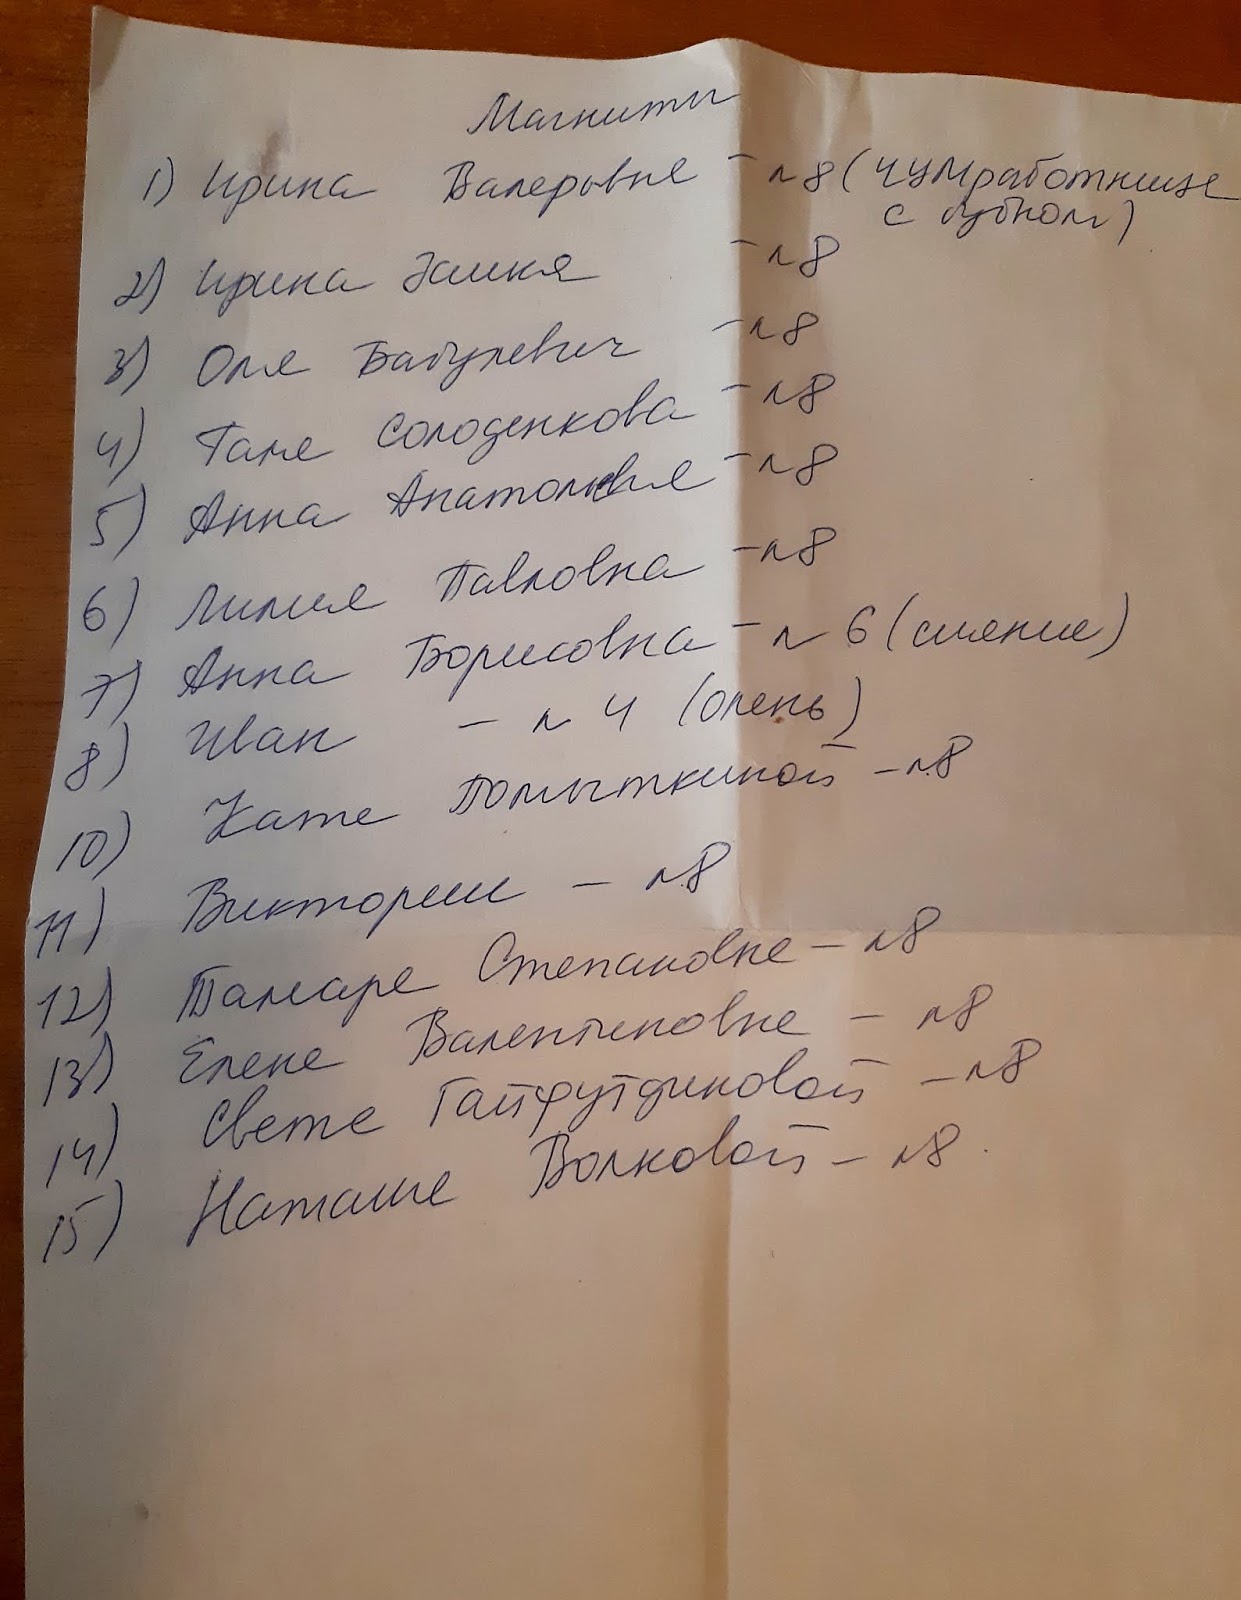 Магниты
1) Ирина Валерьвне - №8 (ЧУМработнице
с бубном)
2) Ирина - №8
3) Оля Бабулевич - №8
4) Галя Солоденкова - №8
5) Анна Анатольевне - №8
6) Лилия Павловна - №8
7) Анна Борисовна - № 6 (сияние)
8) Иван - № 4 (олень)
10) Кате Помыткиной - №8
11) Виктории - №8
12) Тамаре Степановне - №8
13) Елене Валентиновне - №8
14) Свете Гайфутдиновой - №8
15) Наташе Волковой - №8